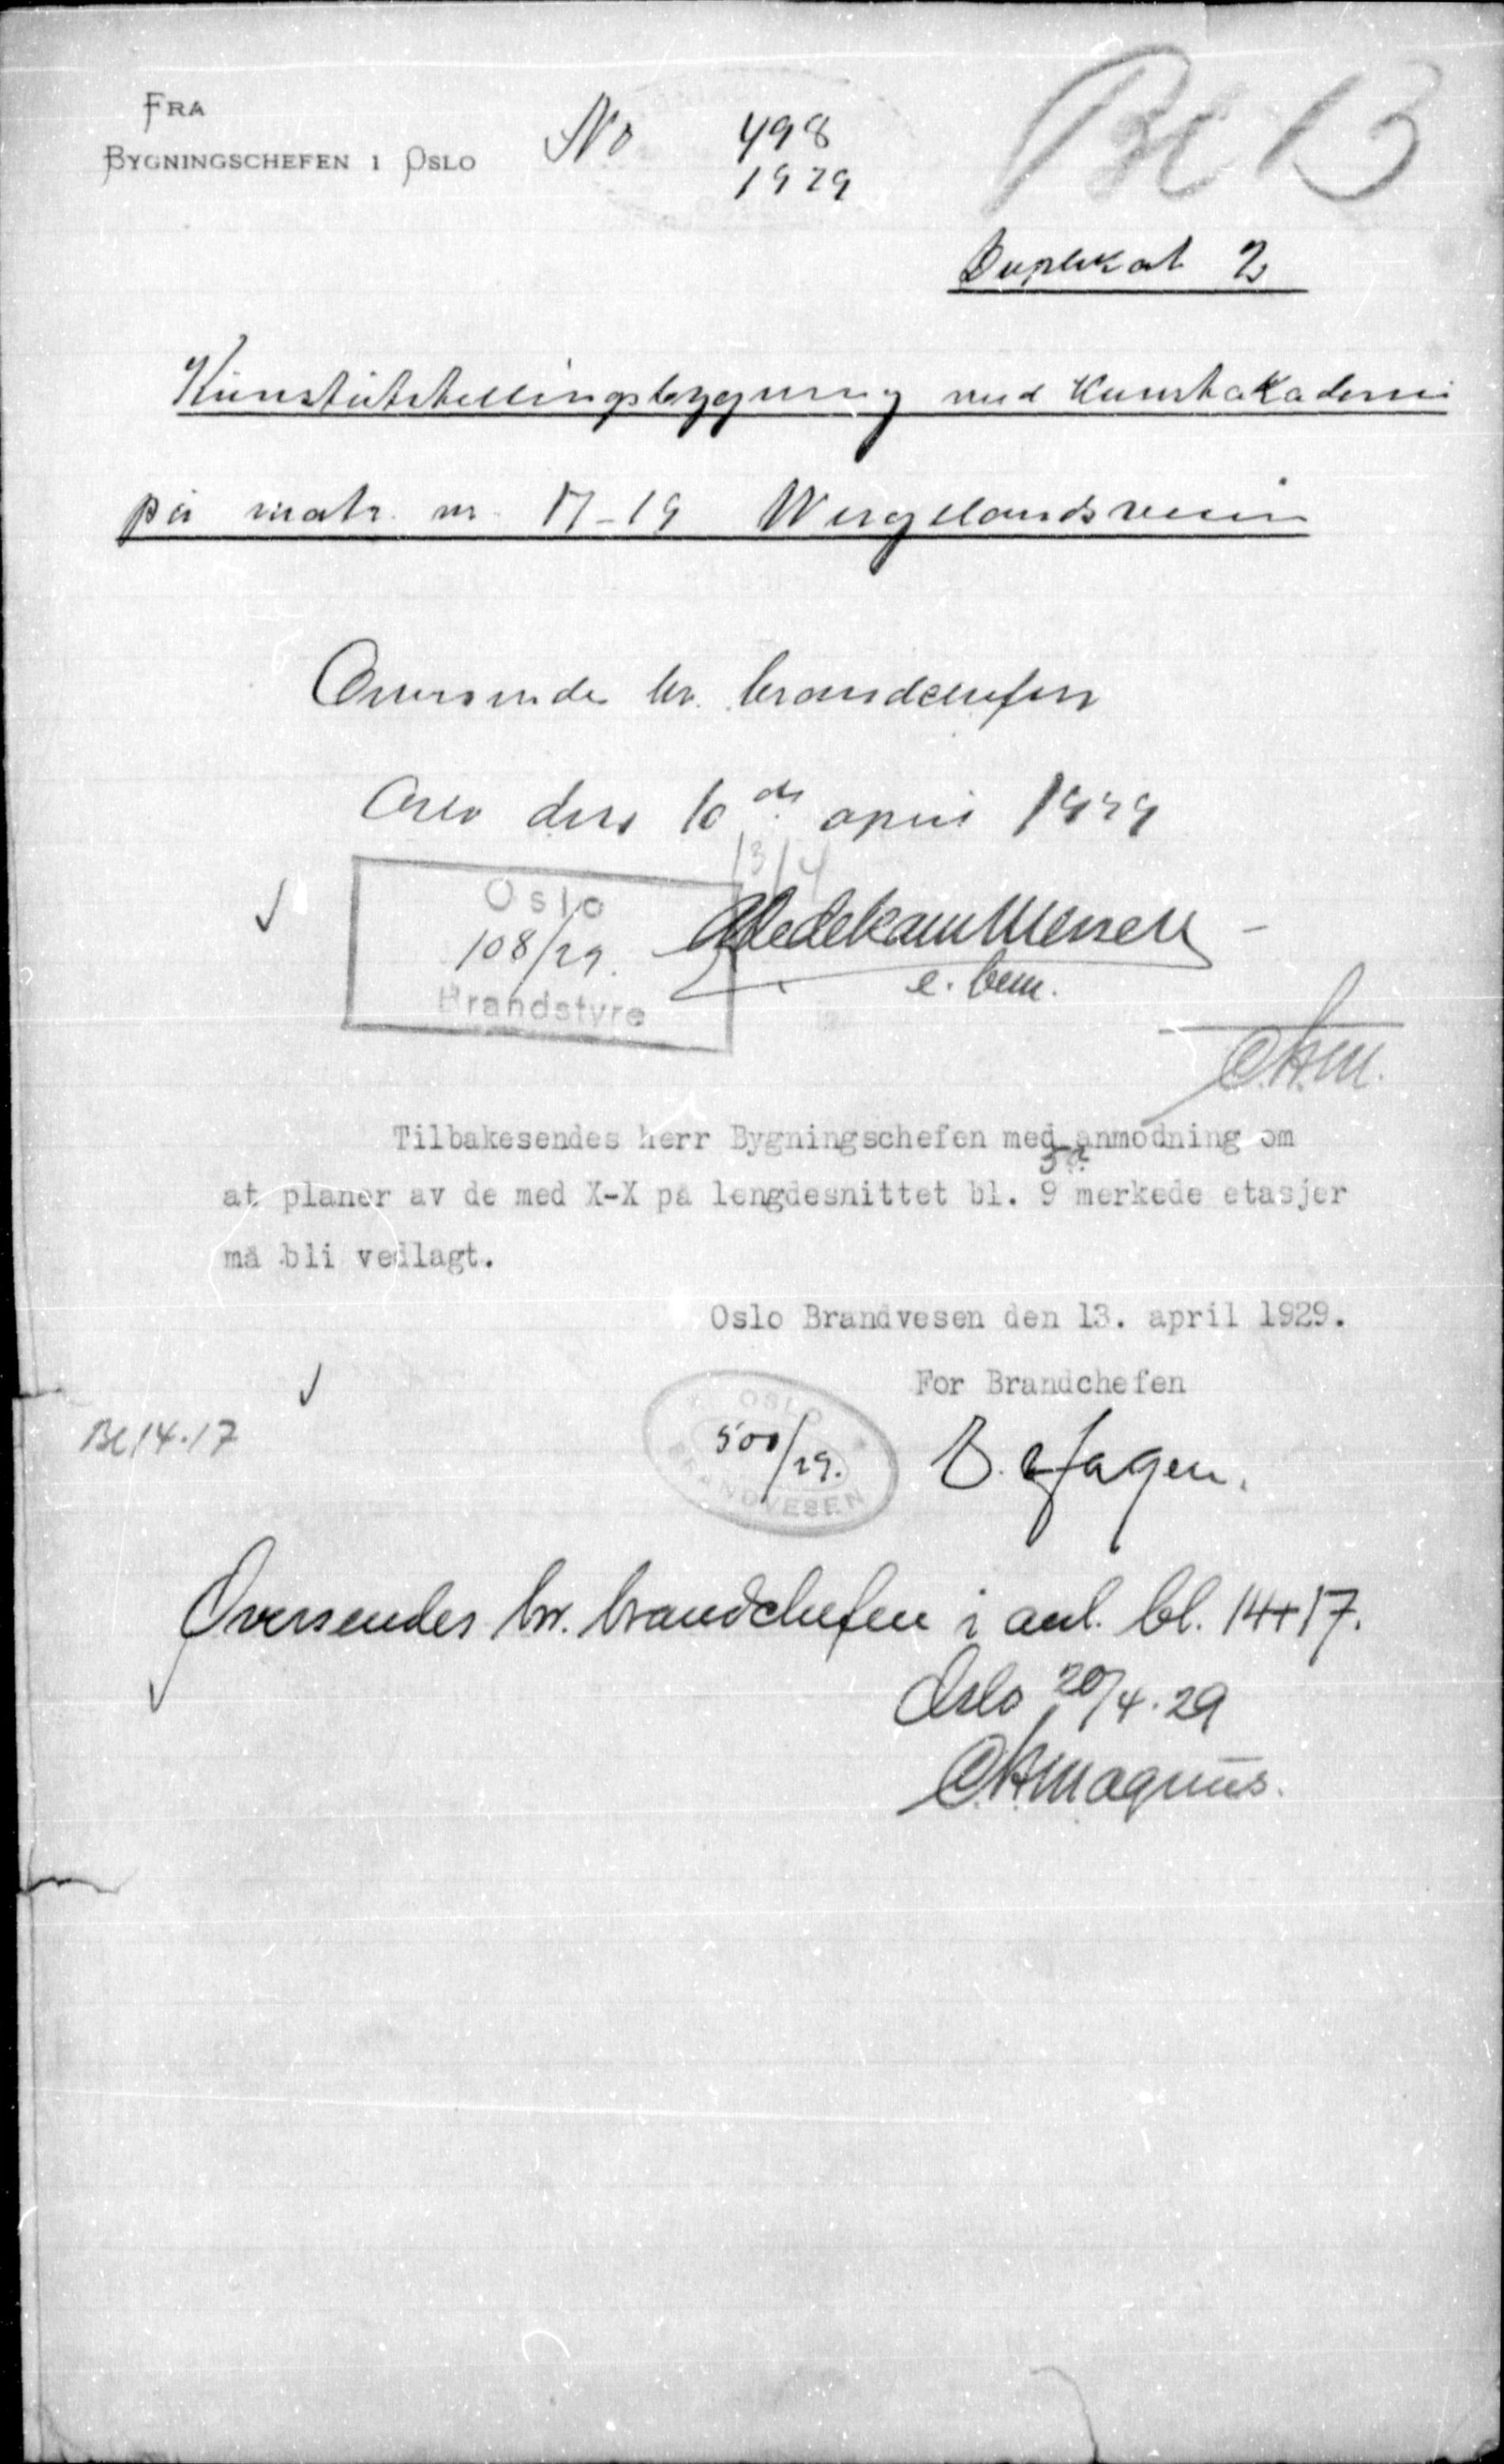 FRA
BYGNINGSCHEFEN I OSLO
No 498
1929
Bl 13
Duplikat 2
Kunstutstillingsbygning med Kunstakademi
på matr. nr. 17-19 Wergelandsveien
Oversendes hr. brandchefen
Oslo den 10de april 1929
13/4
Oslo
108/29.
Brandstyre
e. bem.
C.H.M.
Tilbakesendes herr Bygningschefen med anmodning om
5a.
at planer av de med X-X på lengdesnittet bl. 9 merkede etasjer
må bli vedlagt.
Oslo Brandvesen den 13. april 1929.
For Brandchefen
Bl 14.17
OSLO
500/29.
BRANDVESEN
Oversendes hr. brandchefen i anl. bl. 14+17.
Oslo 20/4.29
C.H.Magnus.